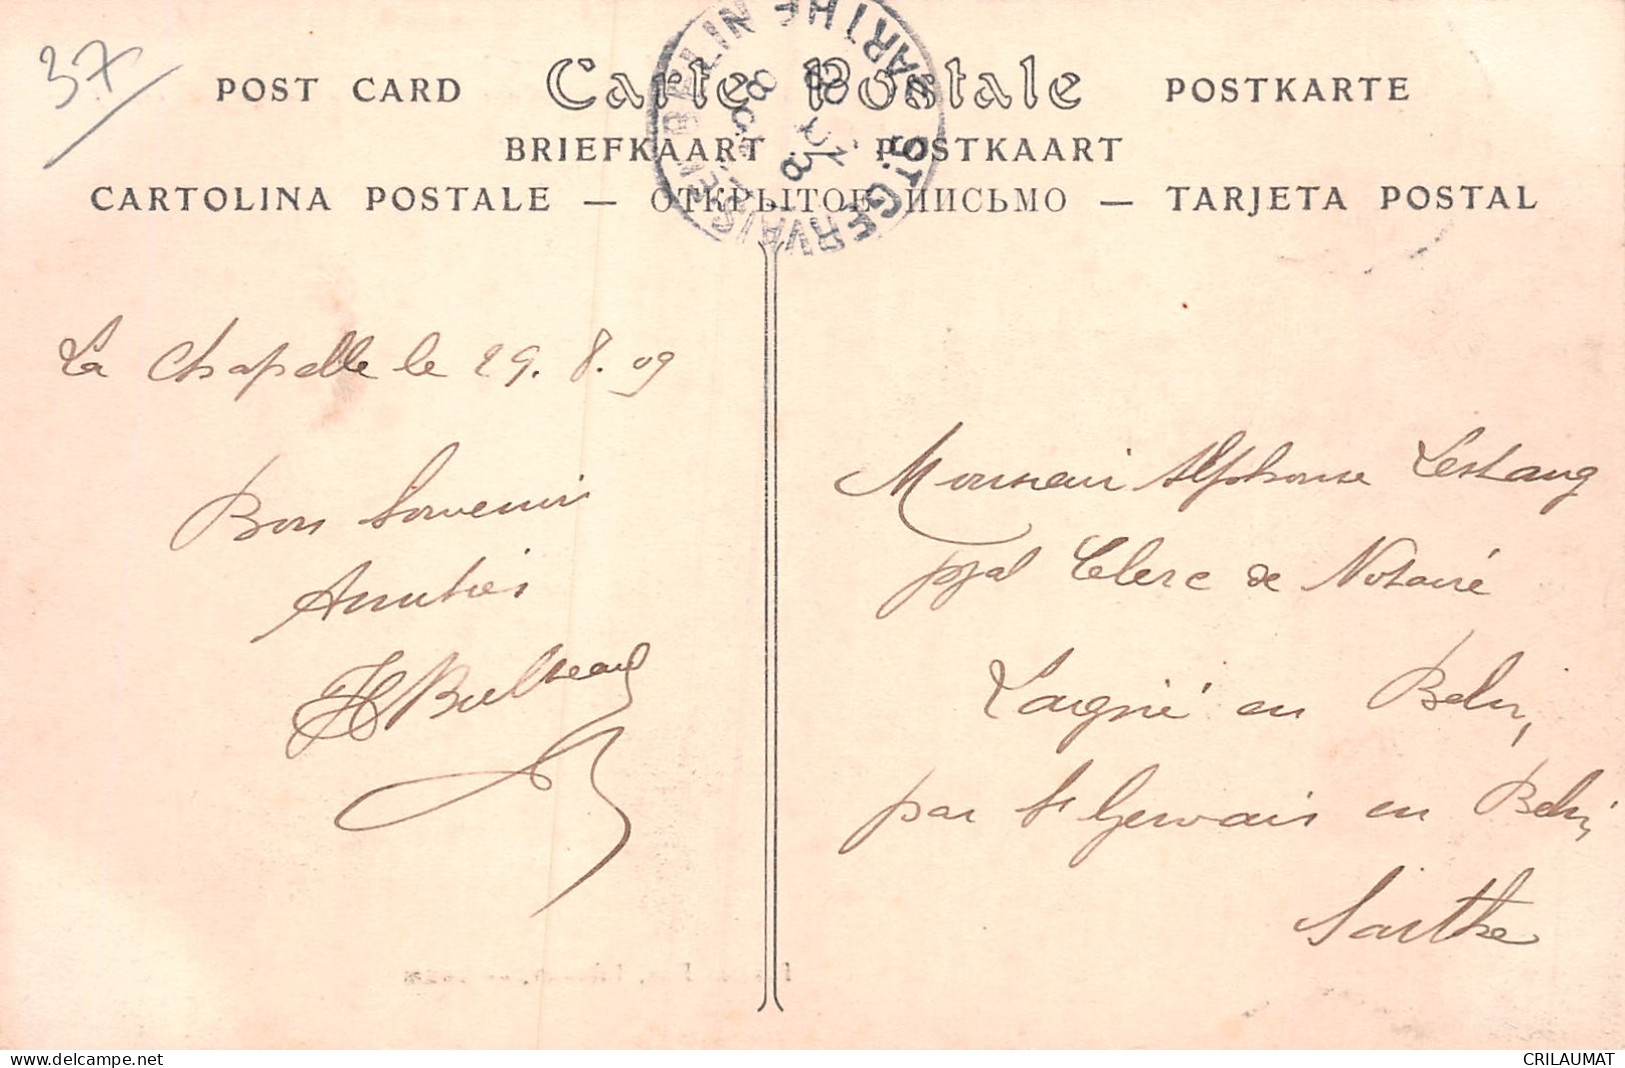 37
POST CARD Carte Postale POSTKARTE
BRIEFKAART POSTKAART
CARTOLINA POSTALE — ОТКРЫТОЕ ПИСЬМО — TARJETA POSTAL
ST GERVAIS EN BELIN SARTHE
La Chapelle le 29.8.09
Bon Souvenir
Amitiés
Monsieur Alphonse Lestang
ppal Clerc de Notaire
Laigné en Belin,
par St Gervais en Belin,
Sarthe
www.delcampe.net
CRILAUMAT